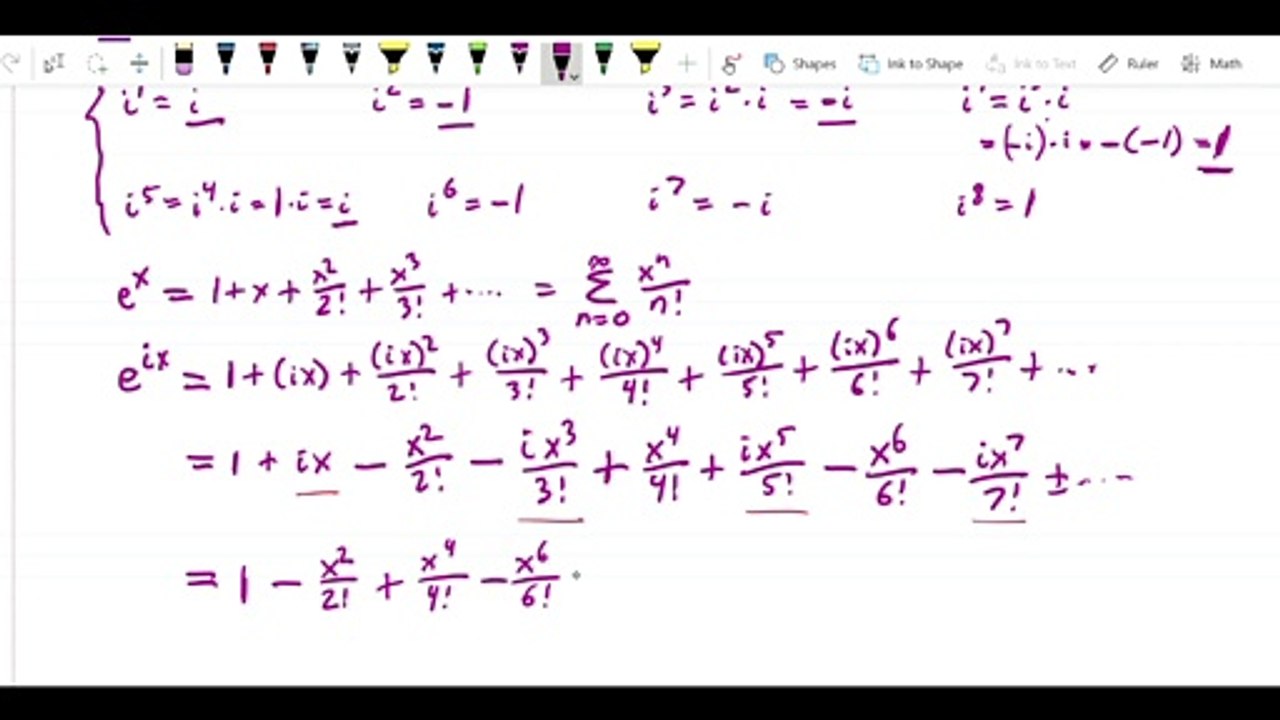 Shapes Ink to Shape Ink to Text Ruler Math
i¹ = i i² = -1 i³ = i²·i = -i
= (-i)·i = -(-1) = 1
i⁵ = i⁴·i = 1·i = i i⁶ = -1 i⁷ = -i i⁸ = 1
eˣ = 1 + x + x²/2! + x³/3! + ···· = ∑_{n=0}^{∞} xⁿ/n!
e^{ix} = 1 + (ix) + (ix)²/2! + (ix)³/3! + (ix)⁴/4! + (ix)⁵/5! + (ix)⁶/6! + (ix)⁷/7! + ···
= 1 + ix - x²/2! - ix³/3! + x⁴/4! + ix⁵/5! - x⁶/6! - ix⁷/7! ± ····
= 1 - x²/2! + x⁴/4! - x⁶/6!